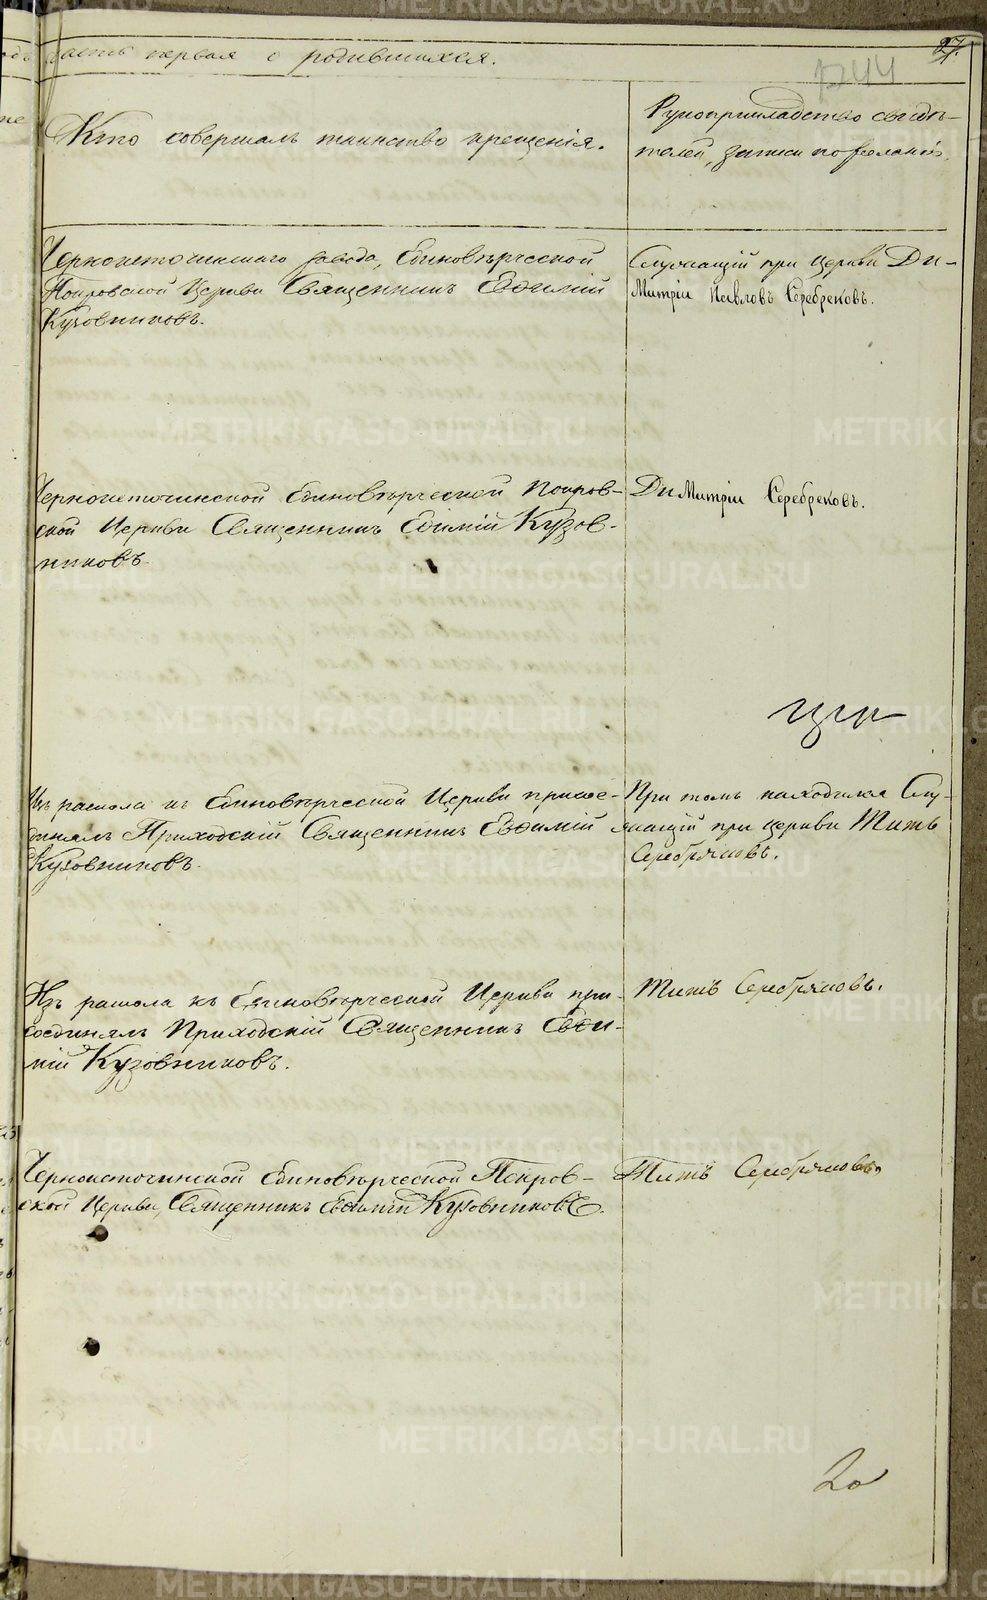 часть первая о родившихся.
27.
Кто совершалъ таинство крещенія.
Рукоприкладство свидѣ-
телей, записи по желанію.
Черноисточинскаго завода, Единовѣрческой
Покровской Церкви Священникъ Евѳимій
Кузовниковъ.
Служащій при церкви Ди-
митрій Павловъ Серебрековъ.
Черноисточинской Единовѣрческой Покров-
ской Церкви Священникъ Евѳимій Кузов-
никовъ.
Димитрій Серебрековъ.
Изъ раскола къ Единовѣрческой Церкви присое-
динялъ Приходскій Священникъ Евѳимій
Кузовниковъ.
При томъ находился Слу-
жащій при церкви Титъ
Серебряковъ.
Изъ раскола къ Единовѣрческой Церкви при-
соединялъ Приходскій Священникъ Евѳи-
мій Кузовниковъ.
Титъ Серебряковъ.
Черноисточинской Единовѣрческой Покров-
ской Церкви, Священникъ Евѳимій Кузовниковъ.
Титъ Серебряковъ
METRIKI.GASO-URAL.RU